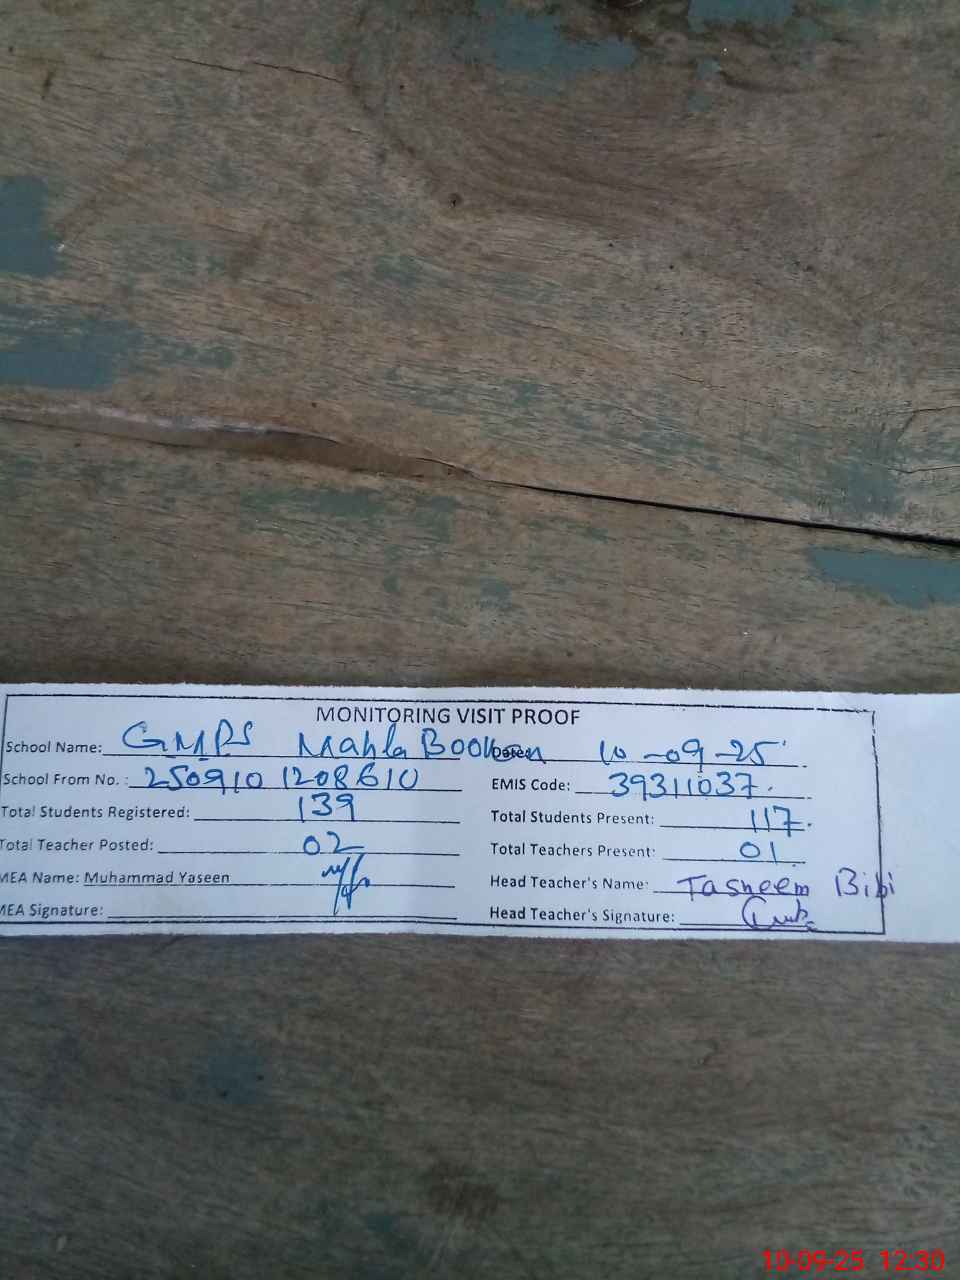 MONITORING VISIT PROOF
School Name: GMPS Mahla Date: 10-09-25
School From No. : 250910 1208610 EMIS Code: 39311037.
Total Students Registered: 139 Total Students Present: 117.
Total Teacher Posted: 02 Total Teachers Present: 01
MEA Name: Muhammad Yaseen Head Teacher's Name: Tasneem Bibi
MEA Signature: Head Teacher's Signature:
10-09-25 12:30